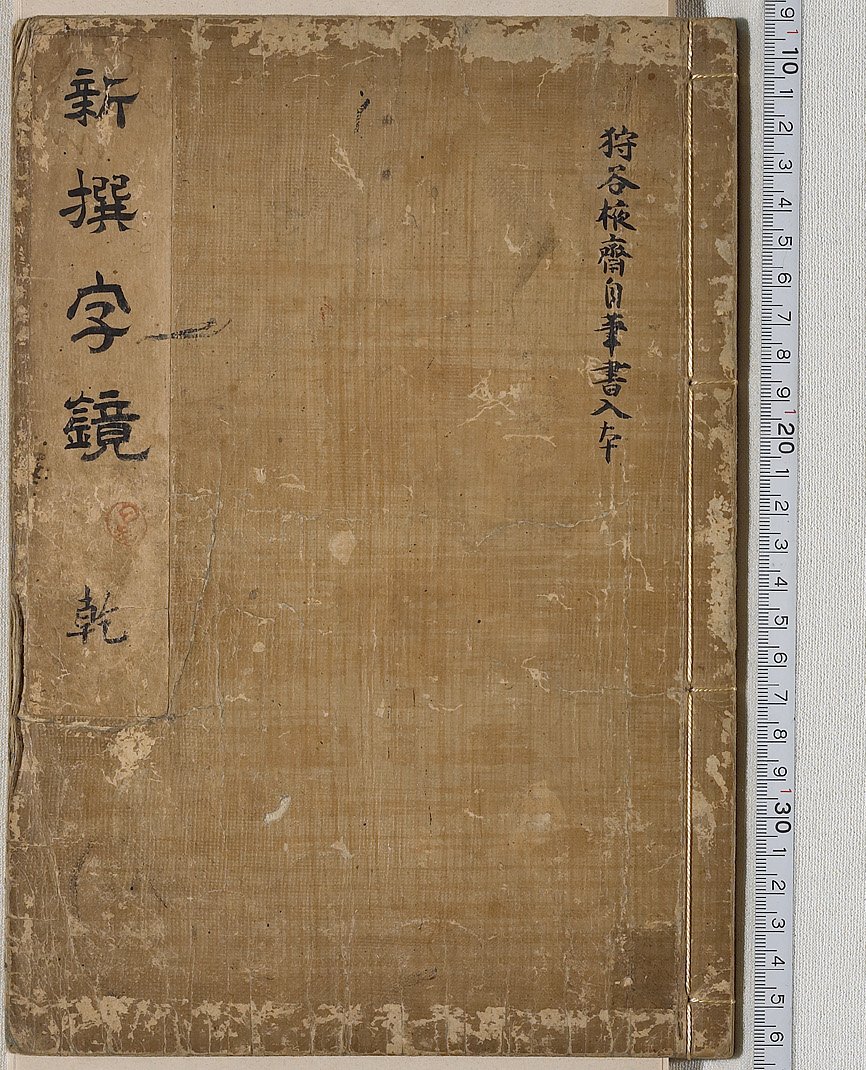 狩谷棭齋自筆書入本
新撰字鏡 乾
9 10 1 2 3 4 5 6 7 8 9 20 1 2 3 4 5 6 7 8 9 30 1 2 3 4 5 6